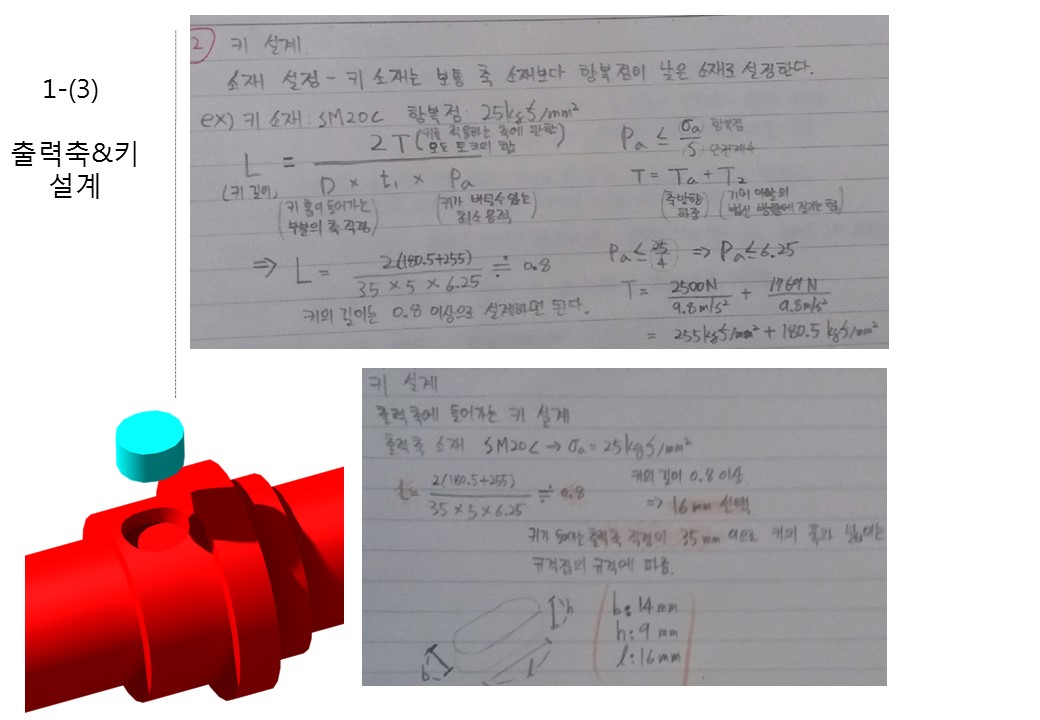 1-(3)
출력축&키
설계
2 키 설계
소재 설정 - 키 소재는 보통 축 소재보다 항복점이 낮은 소재로 설정한다.
ex) 키 소재: SM20C 항복점: 25kgf/mm²
L = 2T (키를 적용하는 축에 관한 모든 토크의 합) / D × t₁ × Pa
(키 길이)
(키 홈이 들어가는 부분의 축 직경)
(키가 버틸 수 있는 최소 응력)
Pa ≤ σa 항복점 / S 안전계수
T = Ta + T₂
(축방향 하중)
⇒ L = 2(180.5+255) / 35 × 5 × 6.25 ≒ 0.8
키의 길이는 0.8 이상으로 설계하면 된다.
Pa ≤ 25/4 ⇒ Pa ≤ 6.25
T = 2500N / 9.8m/s² + 1769N / 9.8m/s²
= 255kgf/mm² + 180.5kgf/mm²
키 설계
출력축에 들어가는 키 설계
출력축 소재 SM20C → σa = 25kgf/mm²
L = 2(180.5+255) / 35 × 5 × 6.25 ≒ 0.8
키의 길이 0.8 이상
⇒ 16mm 선택
키가 들어가는 출력축 직경이 35mm 이므로 키의 폭과 높이는
규격집의 규격에 따름.
b
h
l
b: 14mm
h: 9mm
l: 16mm